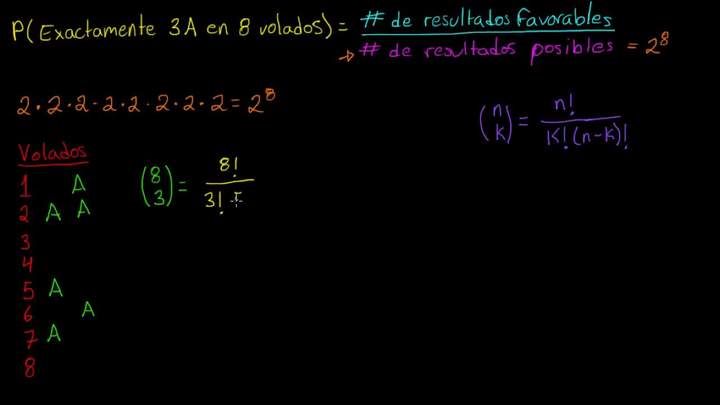 P(Exactamente 3A en 8 volados) = # de resultados favorables
# de resultados posibles = 2^8
2·2·2·2·2·2·2·2 = 2^8
(n k) = n! / K!(n-k)!
Volados
1 A
2 A A
3
4
5 A
6 A
7 A
8
(8 3) = 8! / 3!